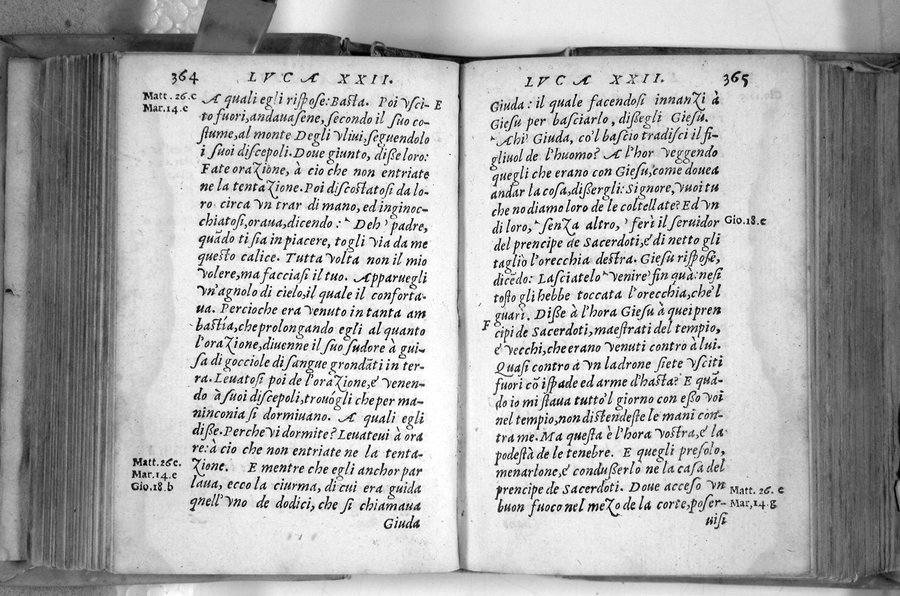 364 LVCÆ XXII.
Matt. 26.c
Mar.14.c
A quali egli rispose: Basta. Poi vsci- E
to fuori, andauasene, secondo il suo co-
stume, al monte Degli vliui, seguendolo
i suoi discepoli. Doue giunto, disse loro:
Fate oraZione, à cio che non entriate
ne la tentaZione. Poi discostatosi da lo-
ro circa vn trar di mano, ed inginoc-
chiatosi, oraua, dicendo: Deh' padre,
quādo ti sia in piacere, togli via da me
questo calice. Tutta volta non il mio
volere, ma facciasi il tuo. Apparuegli
vn'agnolo di cielo, il quale il conforta-
ua. Percioche era venuto in tanta am
bastia, che prolongando egli al quanto
l'oraZione, diuenne il suo sudore à gui-
sa di gocciole di sangue grondāti in ter-
ra. Leuatosi poi de l'oraZione, e' venen-
do à suoi discepoli, trouògli che per ma-
ninconia si dormiuano. A quali egli
disse. Perche vi dormite? Leuateui à ora
re: à cio che non entriate ne la tenta-
Matt. 26c.
Mar.14.c
Gio.18.b
Zione. E mentre che egli anchor par
laua, ecco la ciurma, di cui era guida
quell'vno de dodici, che si chiamaua
Giuda
LVCÆ XXII. 365
Giuda: il quale facendosi innanZi à
Giesù per basciarlo, dißegli Giesù.
Ahi' Giuda, co'l bascio tradisci il fi-
gliuol de l'huomo? A l'hor veggendo
quegli che erano con Giesù, come douea
andar la cosa, dißergli: Signore, vuoi tu
che no diamo loro de le coltellate? Ed vn
di loro, senZa altro, ferì il seruidor Gio.18.c
del prencipe de Sacerdoti, e' di netto gli
tagliò l'orecchia destra. Giesù rispose,
dicēdo: Lasciatelo venire' fin quà: ne si
tosto gli hebbe toccata l'orecchia, che'l
guarì. Diße à l'hora Giesù à quei pren
F cipi de Sacerdoti, maestrati del tempio,
e' vecchi, che erano venuti contro à lui.
Quasi contro à vn ladrone siete vsciti
fuori cō ispade ed arme d'hasta? E quā-
do io mi staua tutto'l giorno con eßo voi
nel tempio, non distendeste le mani con-
tra me. Ma questa è l'hora vostra, e' la
podestà de le tenebre. E quegli presolo,
menarlone, e' condußerlo ne la casa del
prencipe de Sacerdoti. Doue acceso vn
Matt. 26. e
Mar,14.g
buon fuoco nel meZo de la corte, poser-
uisi